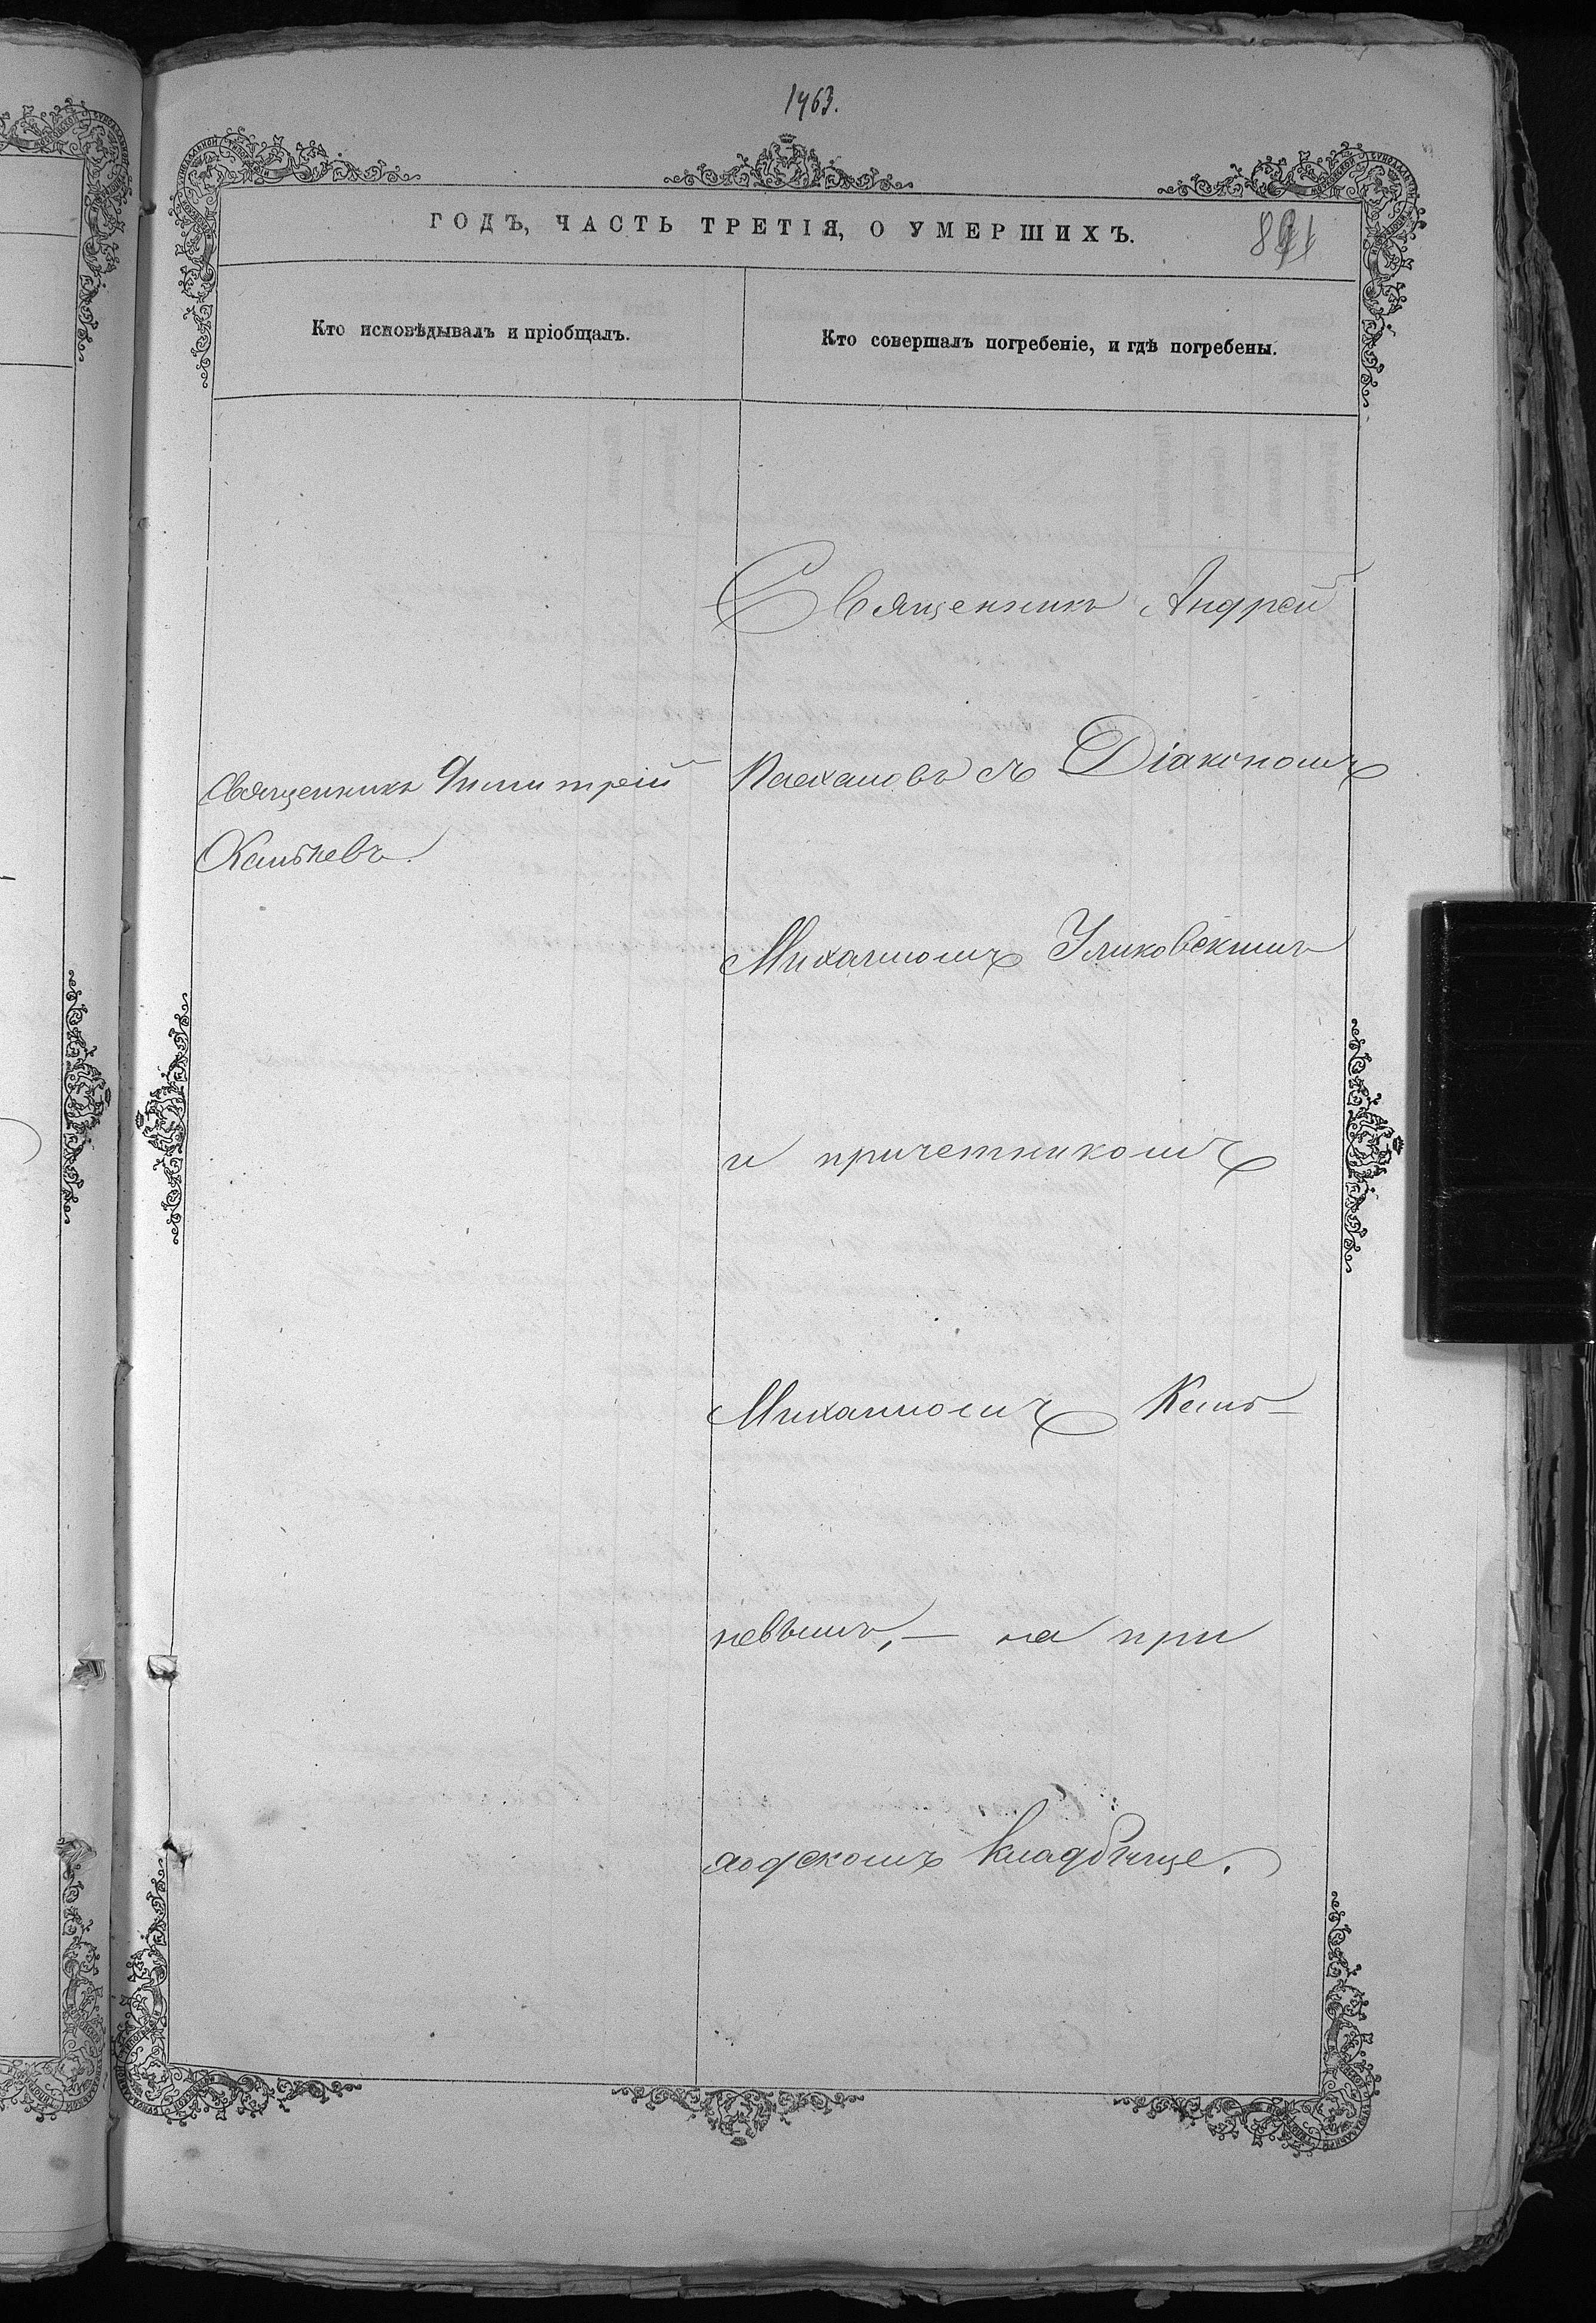 1463.
ГОДЪ, ЧАСТЬ ТРЕТІЯ, О УМЕРШИХЪ.
Кто исповѣдывалъ и пріобщалъ.
Кто совершалъ погребеніе, и гдѣ погребены.
Священникъ Димитрій
Священникъ Андрей
съ Діакономъ
Михаиломъ
и причетникомъ
Михаиломъ
невымъ, — на при
ходскомъ кладбище.